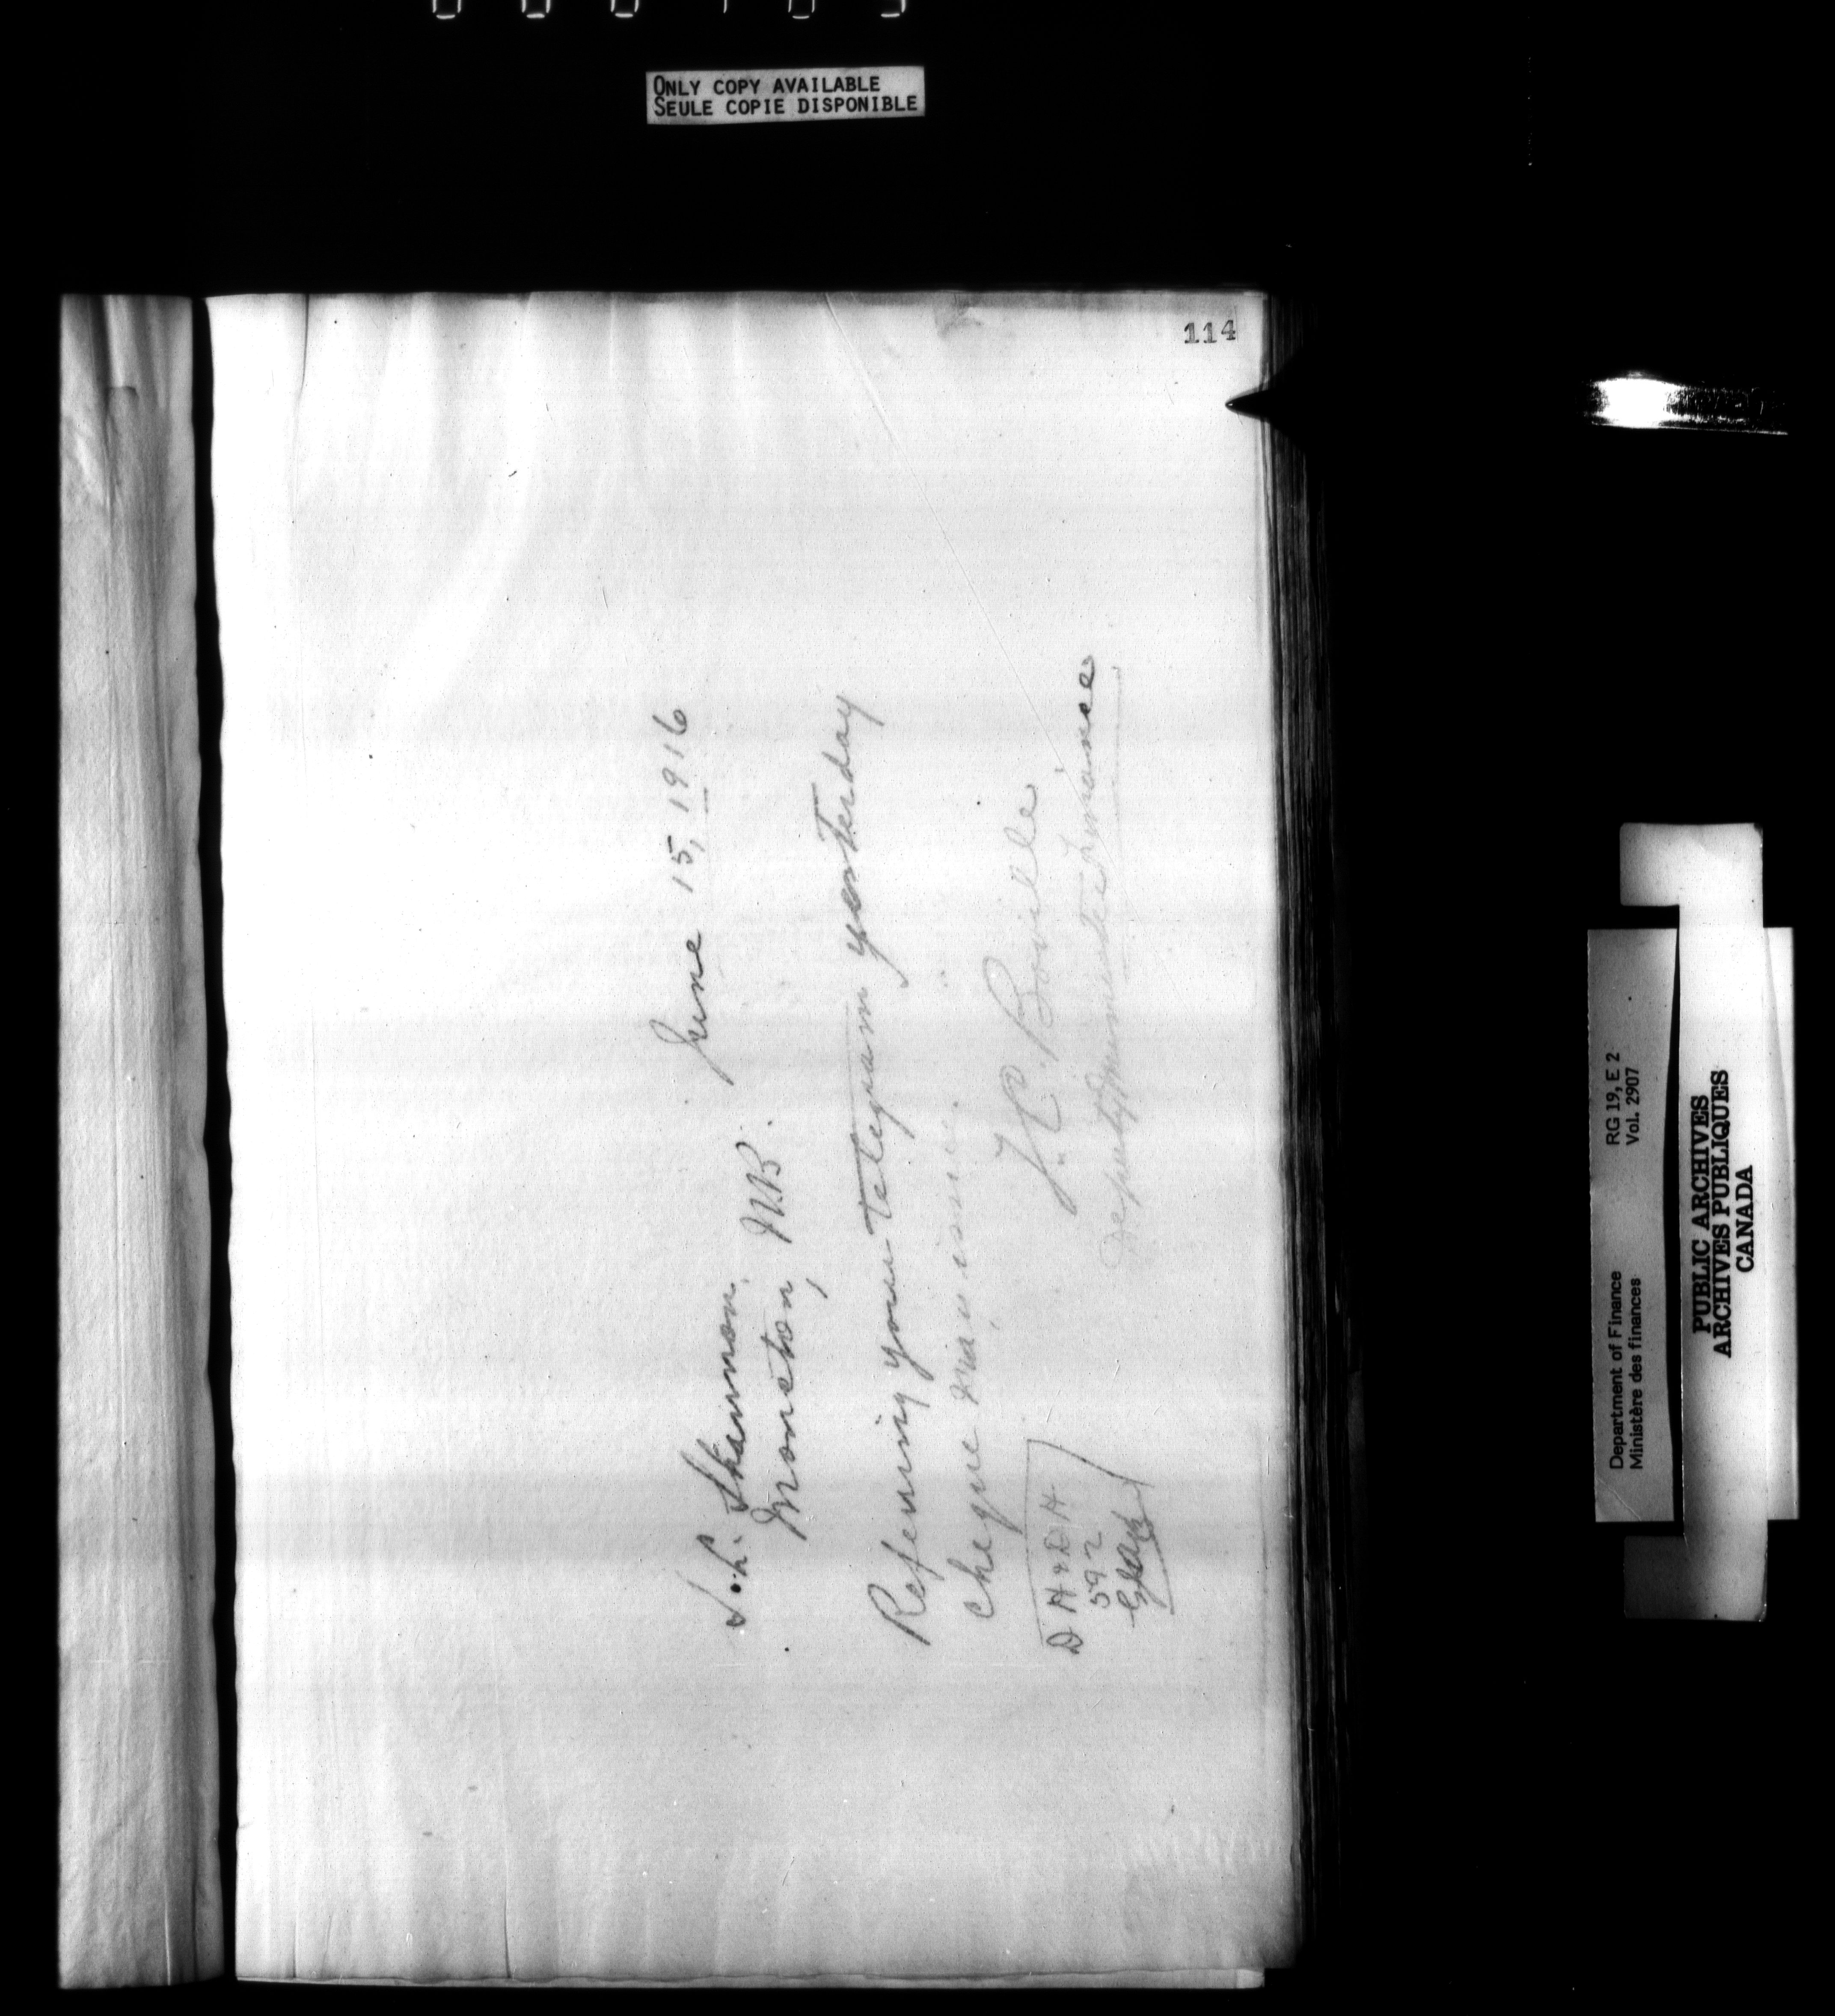 ONLY COPY AVAILABLE
SEULE COPIE DISPONIBLE
114
June 15, 1916
S. L. Shannon,
Moncton, N.B.
Referring your telegram yesterday
cheque may issue.
T. C. Boville
Deputy Minister Finance
D H & D H
592
Department of Finance RG 19, E 2
Ministère des finances Vol. 2907
PUBLIC ARCHIVES
ARCHIVES PUBLIQUES
CANADA